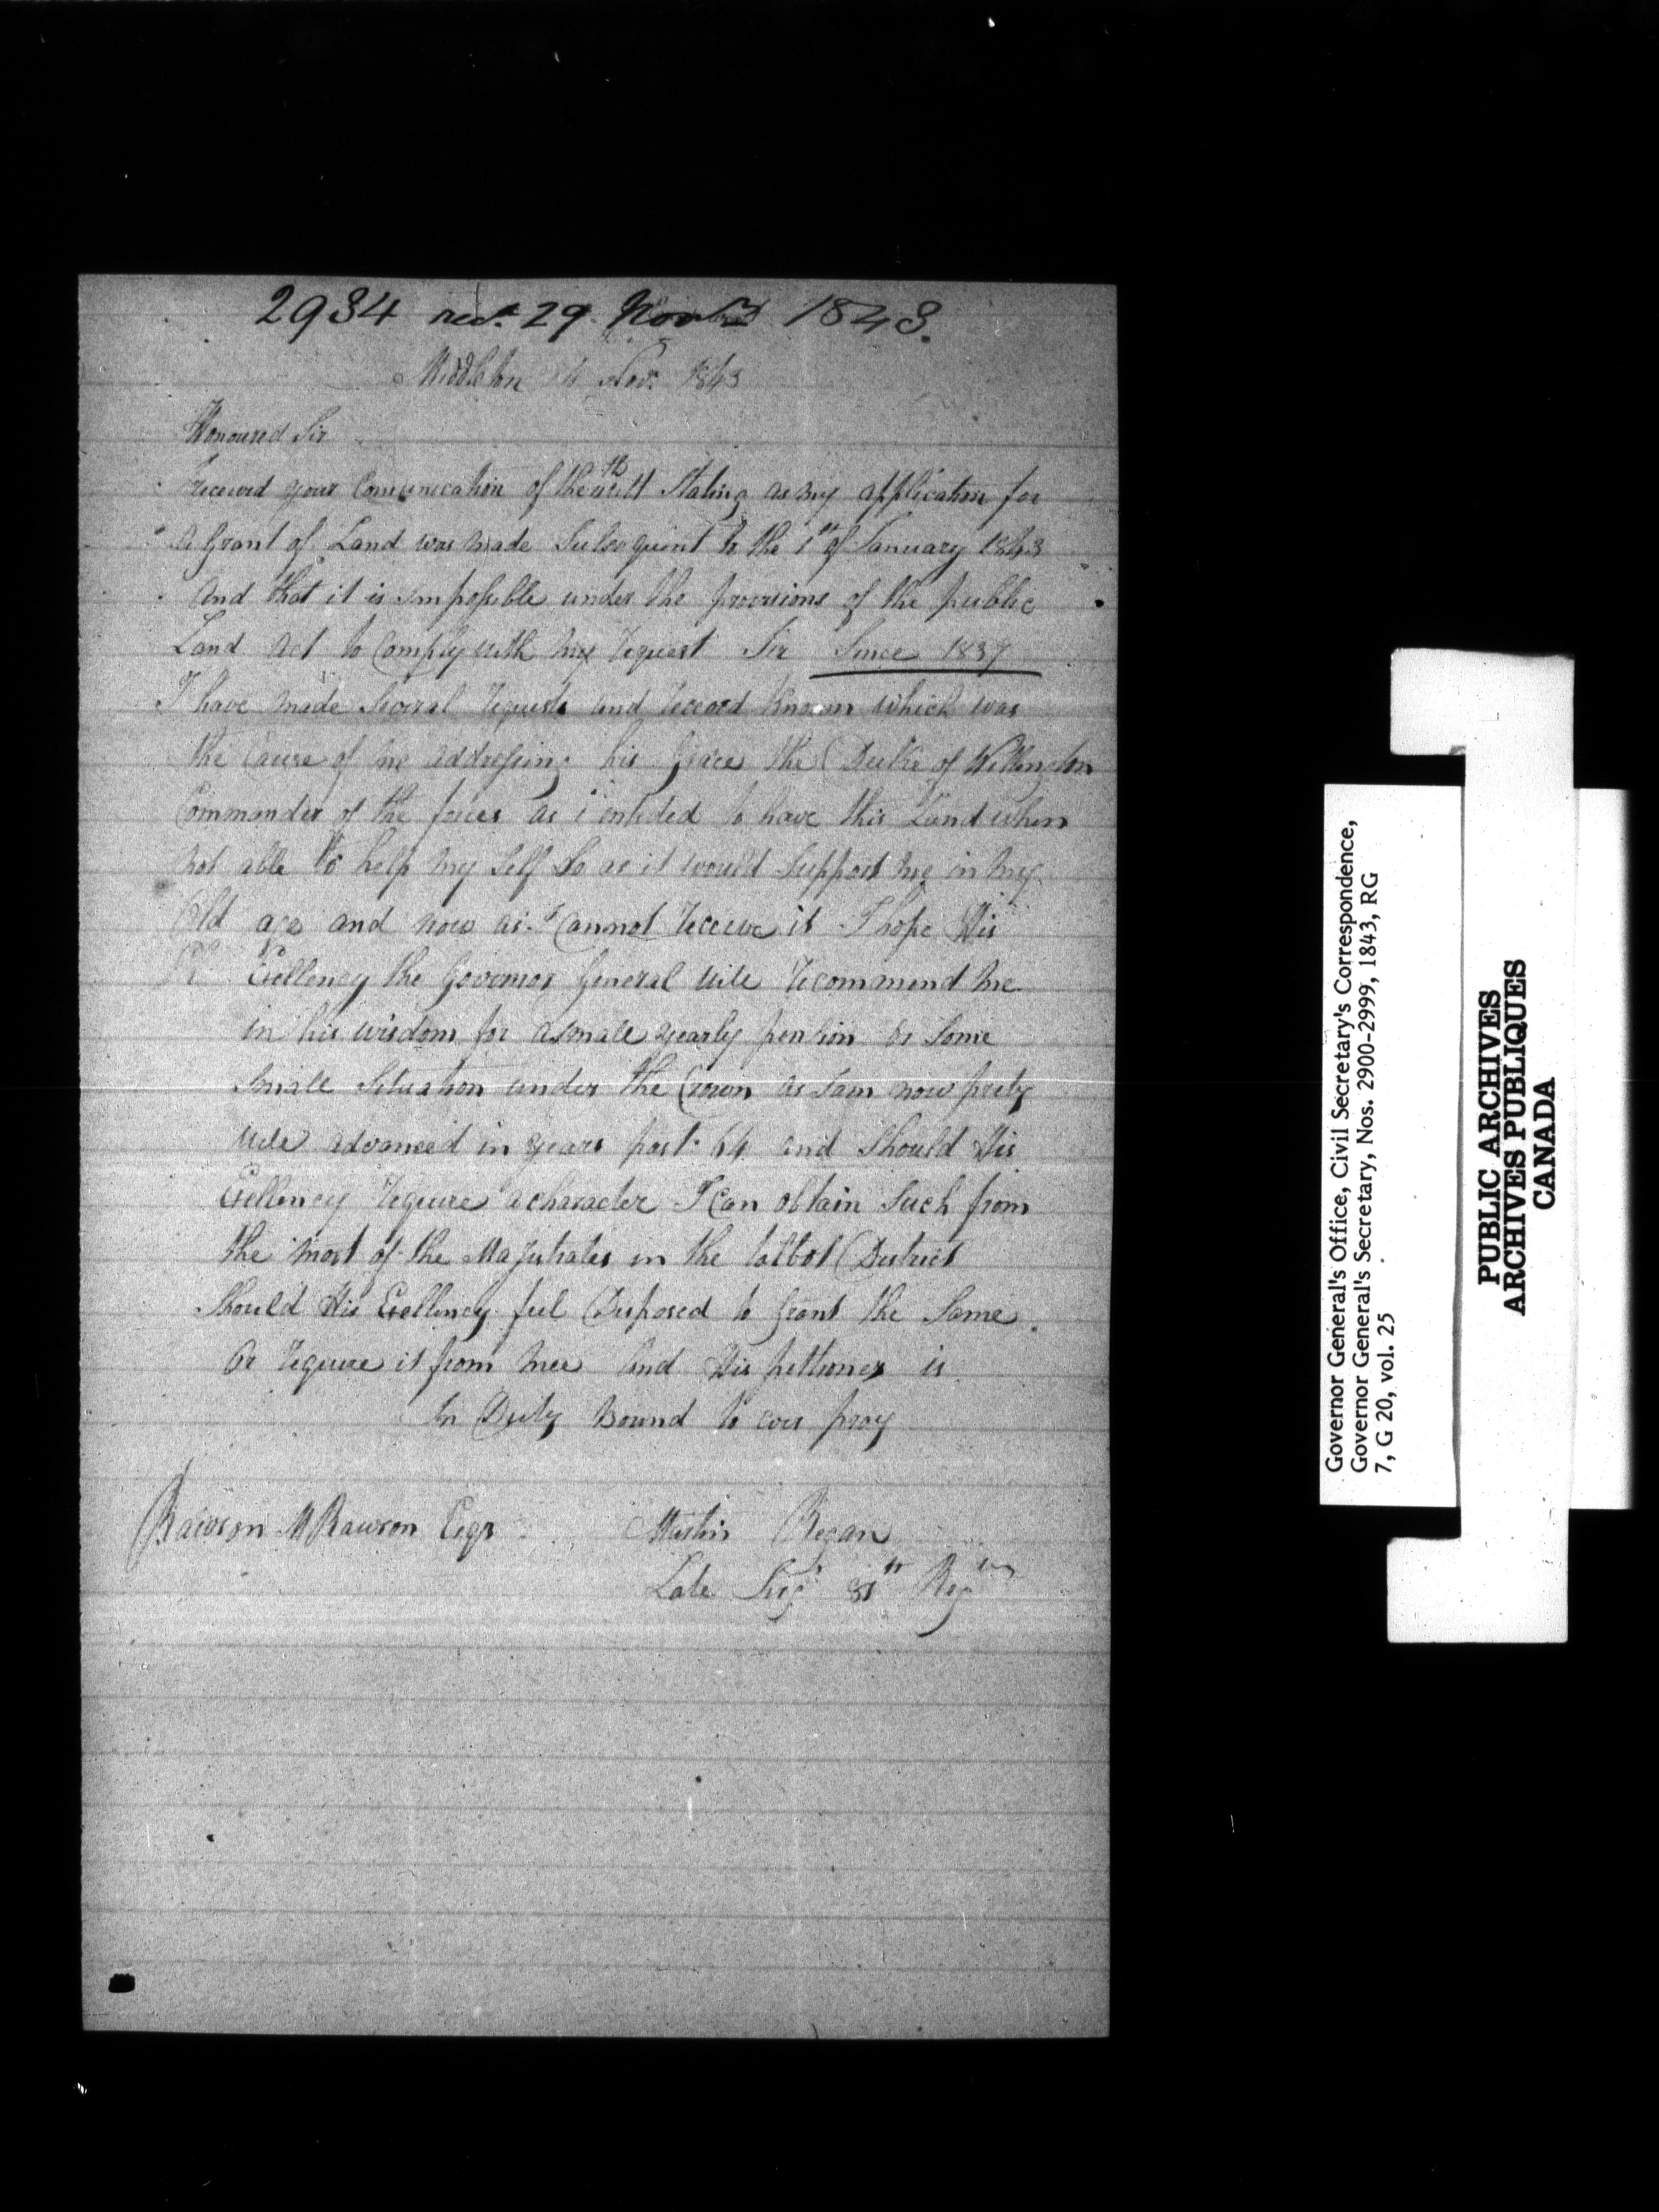 2934 recd. 29 Novbr 1843.
Middleton Novr 1843
Honoured Sir
received your Comunication of the Stating as my application for
A Grant of Land was Made Subsequent to the 1st of January 1843
And that it is impossible under the provisions of the public
Land Act to Comply with my request Sir Since 1837
I have made Several requests and which was
the Cause of me addressing his Grace the Duke of Wellington
Commander of the forces as i entided to have this Land when
not able to help my Self So as it would Support me in my
Old age and now as I Cannot receive it I hope His
Exellency the Governor General will recommend me
in his wisdom for a smale yearly pension or Some
Smale Situation under the Crown as I am now prety
well advanced in years past 64 and Should His
Exellency require a character I Can obtain Such from
the most of the Majistrates in the talbot District
Should His Exellency feel Disposed to Grant the Same
Or require it from mee and His petitioner is
In Duty Bound to ever pray
Rawson W Rawson Esqr
Martin Regan
Late Sergt Regmt
Governor General's Office, Civil Secretary's Correspondence,
Governor General's Secretary, Nos. 2900-2999, 1843, RG
7, G 20, vol. 25
PUBLIC ARCHIVES
ARCHIVES PUBLIQUES
CANADA